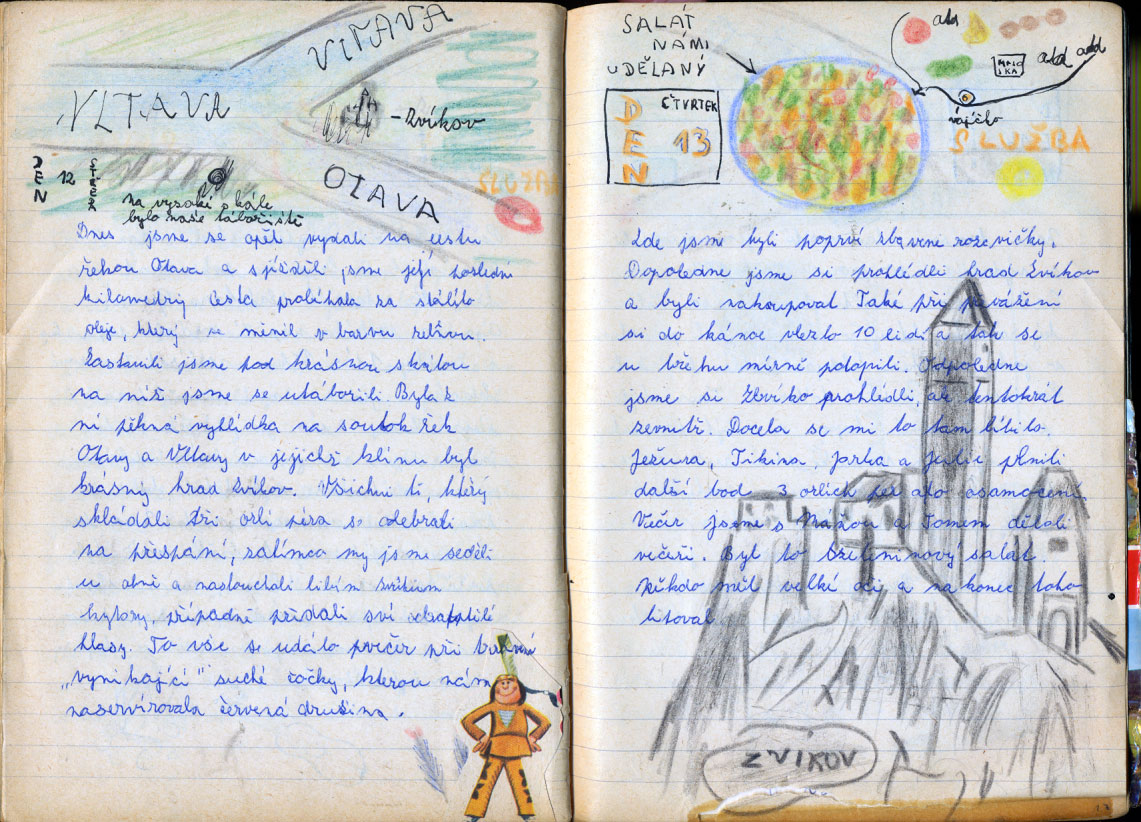 VLTAVA
VLTAVA
- Zvíkov
OTAVA
DEN 12 STŘEDA
SLUŽBA
na vysoké skále
bylo naše tábořiště
Dnes jsme se opět vydali na cestu
řekou Otava a sjížděli jsme její poslední
kilometry cesta probíhala za stálího
oleje, který se měnil v barvu zelenou.
Zastavili jsme pod krásnou skálou
na níž jsme se utábořili. Byla z
ní pěkná vyhlídka na soutok řek
Otavy a Vltavy v jejichž klínu byl
krásný hrad Zvíkov. Všichni ti, který
skládali tři orlí péra se odebrali
na přespání, zatímco my jsme seděli
u ohně a naslouchali libím zvukum
kytory, případně přidali své
hlasy. To vše se událo večír při
"vynikající" suché čočky, kterou nám
naservírovala červená družina.
SALÁT
NÁMI
UDĚLANÝ
DEN ČTVRTEK
13
atd
MAJO
IKA
atd atd
vajíčko
SLUŽBA
Zde jsme byli poprví zbavene rozevičky.
Dopoledne jsme si prohlédli hrad Zvíkov
a byli nakoupovat. Také při převážení
si do kánoe vlezlo 10 lidí a tak se
u břehu mírně potopili. Odpoledne
jsme si Zvíko prohlédli, ale tentokrát
zevnitř. Docela se mi to tam líbilo.
Ježura, Tikina, a plnili
další bod 3 orlích per ato osamocení.
Večír jsme s Mážou a Tomem dělali
večeři. Byl to zeleninový salát.
Někdo měl velkí oči a na konec toho
litoval
ZVÍKOV
17